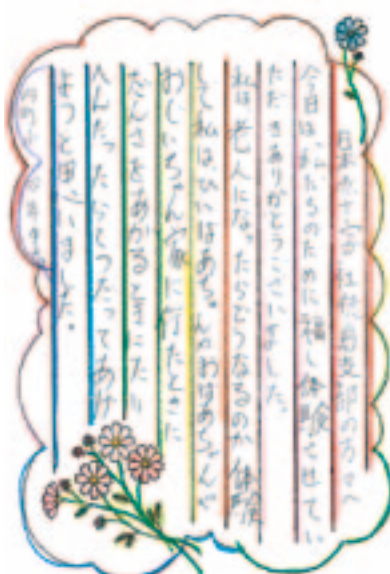 日本赤十字社 支部の方々へ
今日は、私たちのために福し体験させてい
ただきありがとうございました。
私は老人になったらどうなるのか体験
して私は、ひいばあちゃんやおばあちゃんや
おじいちゃん家に行たときに
だんさをあがるときにたい
へんだったらてつだってあげ
ようと思いました。